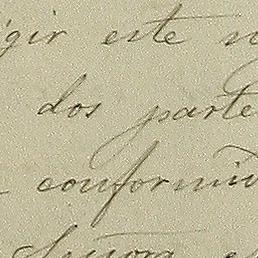 gir este
dos parte
conformid
Señora